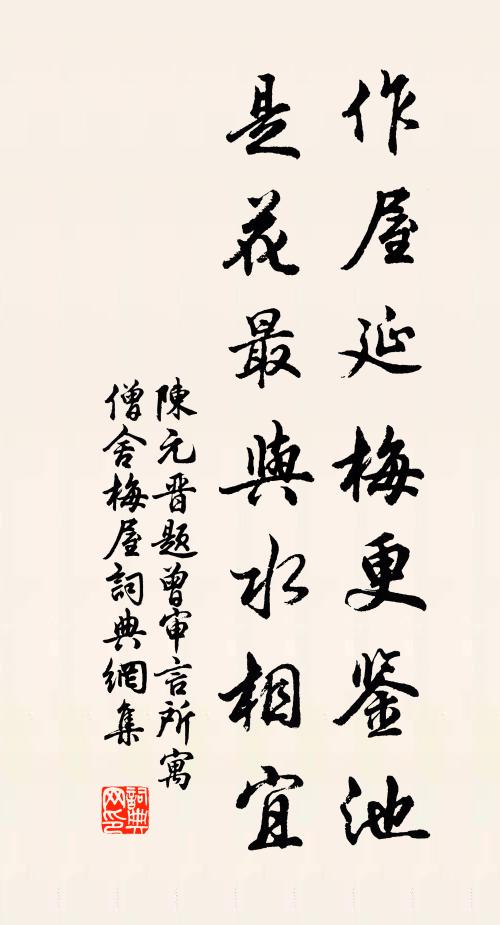 作屋延梅更鉴池
是花最與水相宜
陳元晋题曾审言所寓
僧舍梅屋詞典網集
詞典网印